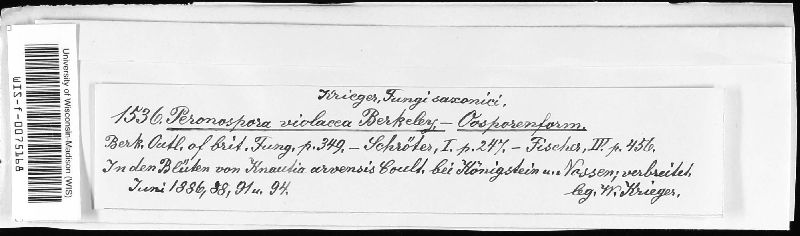 Krieger, Fungi saxonici.
1536. Peronospora violacea Berkeley, – Oosporenform.
Berk. Outl. of brit. Fung. p. 349. – Schröter, I. p. 247. – Fischer, IV p. 456.
In den Blüten von Knautia arvensis Coult. bei Königstein u. Nossen; verbreitet.
Juni 1886, 88, 91 u. 94. leg. W. Krieger.
University of Wisconsin-Madison (WIS)
WIS-f-0075168